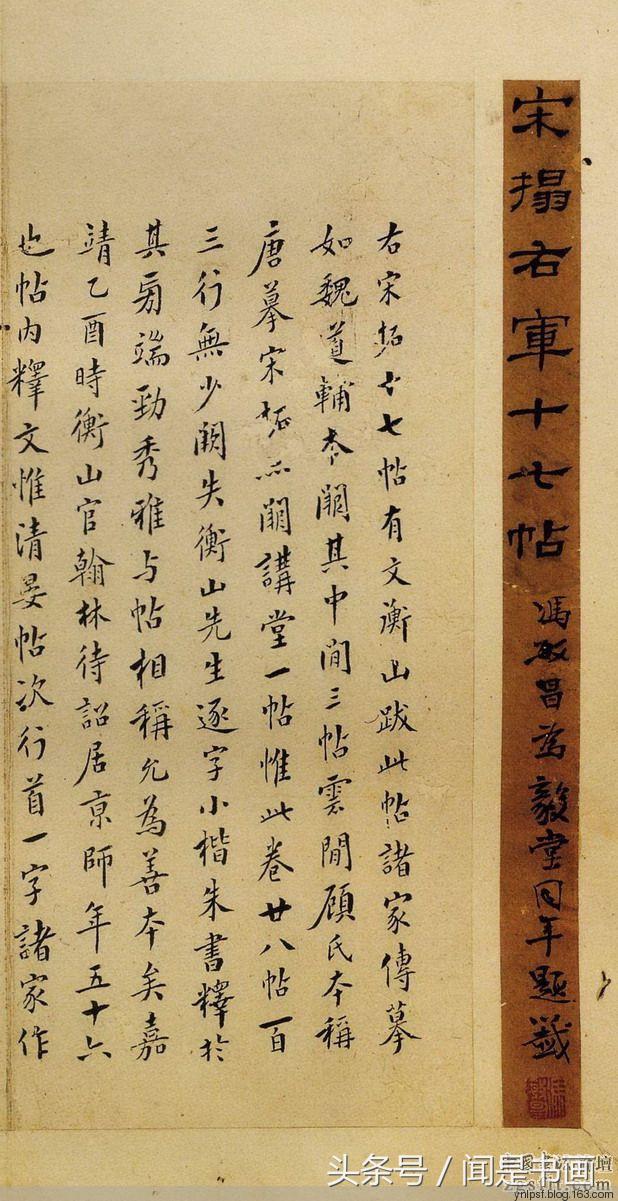 宋搨右軍十七帖
馮敏昌為毅堂同年題籤
右宋拓十七帖有文衡山跋此帖諸家傳摹
如魏道輔本闕其中間三帖雲間顧氏本稱
唐摹宋拓亦闕講堂一帖惟此卷廿八帖一百
三行無少闕失衡山先生逐字小楷朱書釋於
其旁端勁秀雅与帖相稱允為善本矣嘉
靖乙酉時衡山官翰林待詔居京師年五十六
也帖内釋文惟清晏帖次行首一字諸家作
头条号 / 闻是书画
ynlpsf.blog.163.com